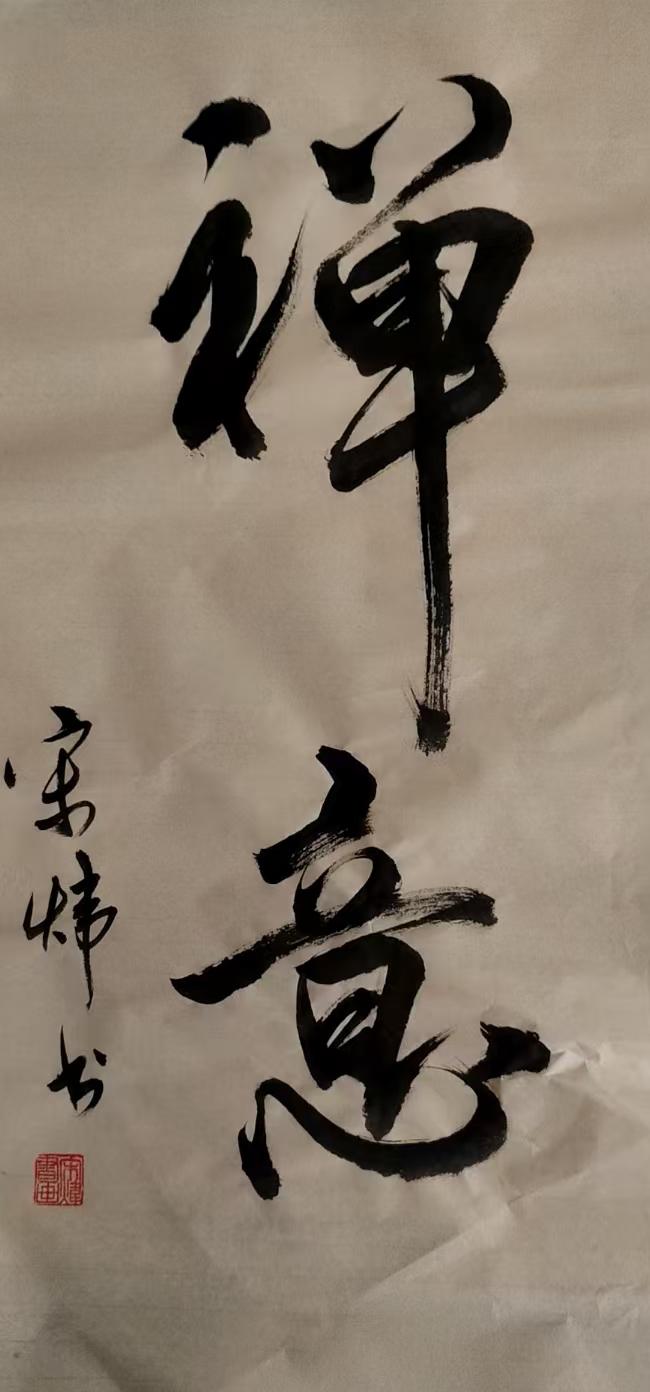 禅意
宋炜书